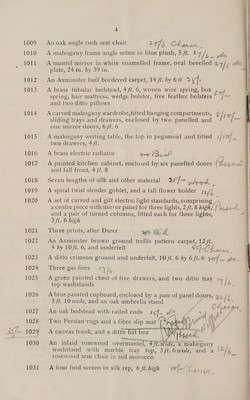 4
1009 An oak angle rush seat chair 20/6
1010 A mahogany frame angle settee in blue plush, 5 ft.
1011 A mantel mirror in white enamelled frame, oval bevelled
plate, 24 in. by 39 in.
1012 An Axminster buff bordered carpet, 14 ft. by 6 ft
1013 A brass tubular bedstead, 4 ft. 6, woven wire spring, box
spring, hair mattress, wedge bolster, five feather bolsters
and two ditto pillows
1014 A carved mahogany wardrobe, fitted hanging compartments,
sliding trays and drawers, enclosed by two panelled and
one mirror doors, 6 ft. 6
1015 A mahogany writing table, the top in pegamoid and fitted
two drawers, 4 ft.
1016 A brass electric radiator no Bid
1017 A painted kitchen cabinet, enclosed by six panelled doors
and fall front, 4 ft. 8
1018 Seven lengths of silk and other material
1019 A spiral twist slender goblet, and a tall flower holder
1020 A set of carved and gilt electric light standards, comprising
a centre piece with mirror panel for three lights, 2 ft. 8 high,
and a pair of turned columns, fitted each for three lights,
3 ft. 6 high
1021 Three prints, after Durer
1022 An Axminster brown ground trellis pattern carpet, 12 ft.
4 by 10 ft. 6, and underfelt
1023 A ditto crimson ground and underfelt, 10 ft. 6 by 6 ft. 6
1024 Three gas fires
1025 A green painted chest of five drawers, and two ditto tray
top washstands
1026 A blue painted cupboard, enclosed by a pair of panel doors,
3 ft. 10 wide, and an oak umbrella stand
1027 An oak bedstead with railed ends
1028 Two Persian rugs and a fibre slip mat
1029 A canvas trunk, and a ditto hat box
1030 An inlaid rosewood overmantel, 4 ft. wide, a mahogany
washstand with marble top, 3 ft. 6 wide, and a
rosewood arm chair in red morocco
1031 A four fold screen in silk rep, 6 ft. high